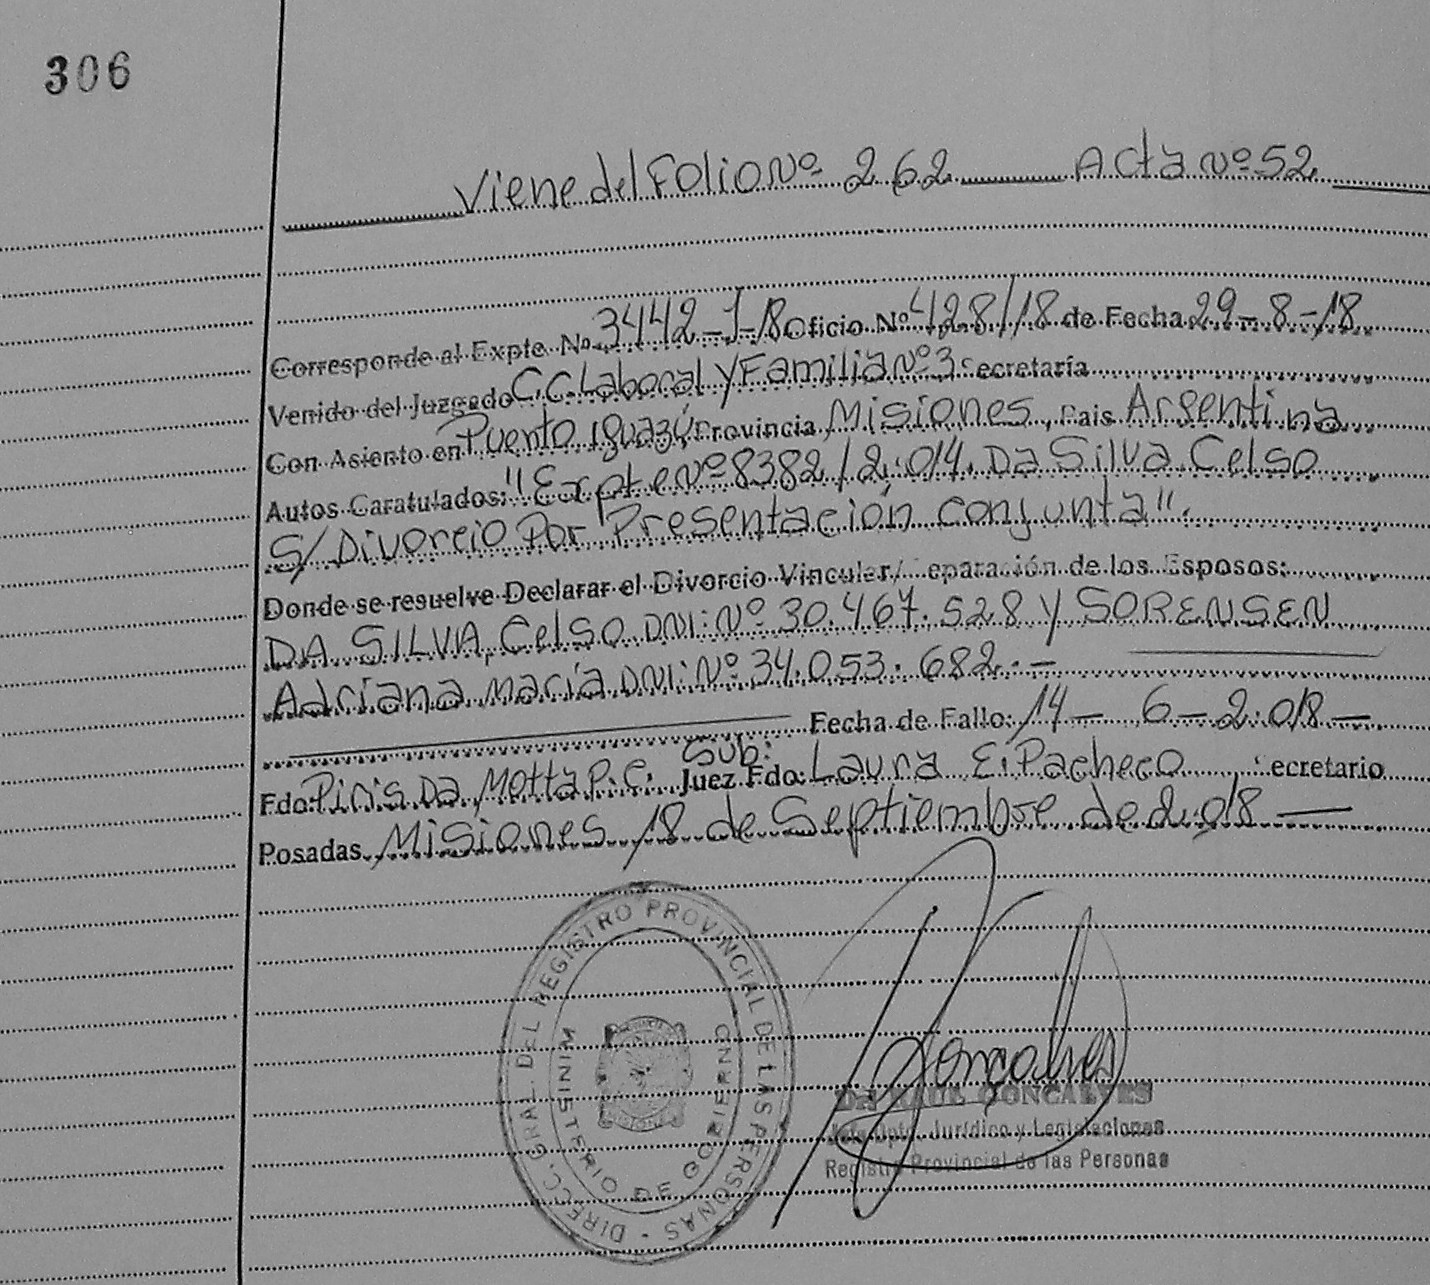 306
Viene del Folio Nº 262 Acta Nº 52
Corresponde al Expte Nº 3442-J-18 Oficio Nº 428/18 de Fecha 29-8-18
Venido del Juzgado C.C. Laboral y Familia Nº 3 Secretaría
Con Asiento en Puerto Iguazú Provincia Misiones, Pais Argentina
Autos Caratulados: "Expte Nº 8382/2.014. Da Silva Celso
S/ Divorcio Por Presentación conjunta".
Donde se resuelve Declarar el Divorcio Vincular/Separación de los Esposos:
DA SILVA, Celso DNI: Nº 30.467.528 y SORENSEN
Adriana María DNI: Nº 34.053.682.-
Fecha de Fallo: 14-6-2.018-
Sub:
Fdo: Piris Da Motta P.C. Juez Fdo: Laura E. Pacheco, Secretario
Posadas, Misiones 18 de Septiembre de 2.018-
DIRECC. GRAL. DEL REGISTRO PROVINCIAL DE LAS PERSONAS -
MINISTERIO DE GOBIERNO
Dr RAUL GONCALVES
Jefe Dpto. Jurídico y Legislaciones
Registro Provincial de las Personas